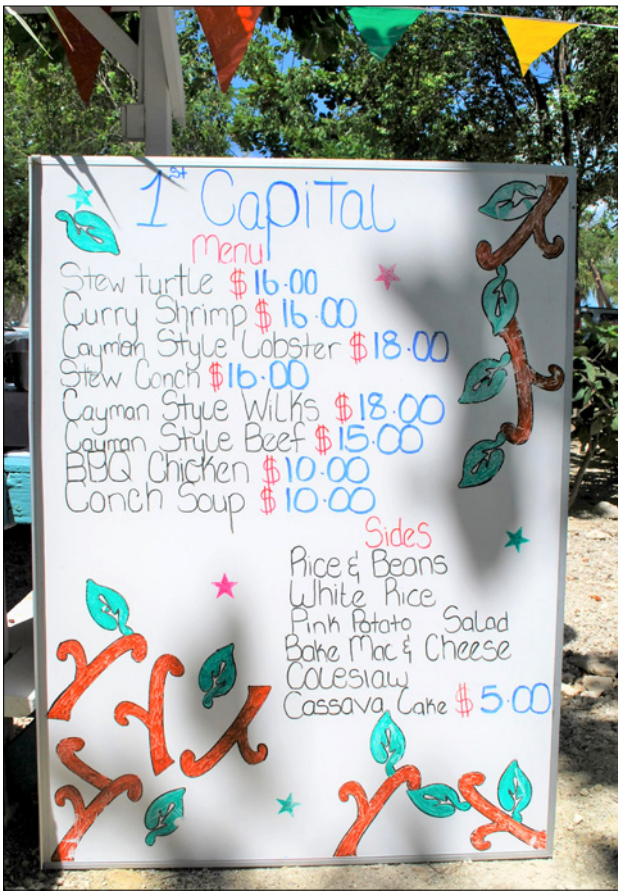 1st Capital
Menu
Stew turtle $16.00
Curry Shrimp $16.00
Cayman Style Lobster $18.00
Stew Conch $16.00
Cayman Style Wilks $18.00
Cayman Style Beef $15.00
BBQ Chicken $10.00
Conch Soup $10.00
Sides
Rice & Beans
White Rice
Pink Potato Salad
Bake Mac & Cheese
Coleslaw
Cassava Cake $5.00